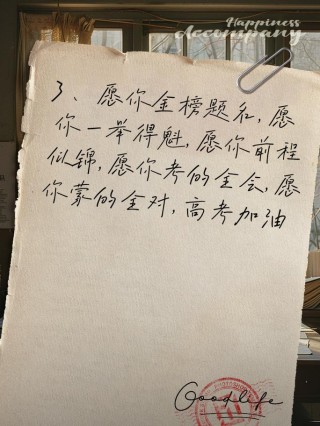 Happiness
Accompany
3、愿你金榜题名，愿
你一举得魁，愿你前程
似锦，愿你考的全会，愿
你蒙的全对，高考加油
Goodlife